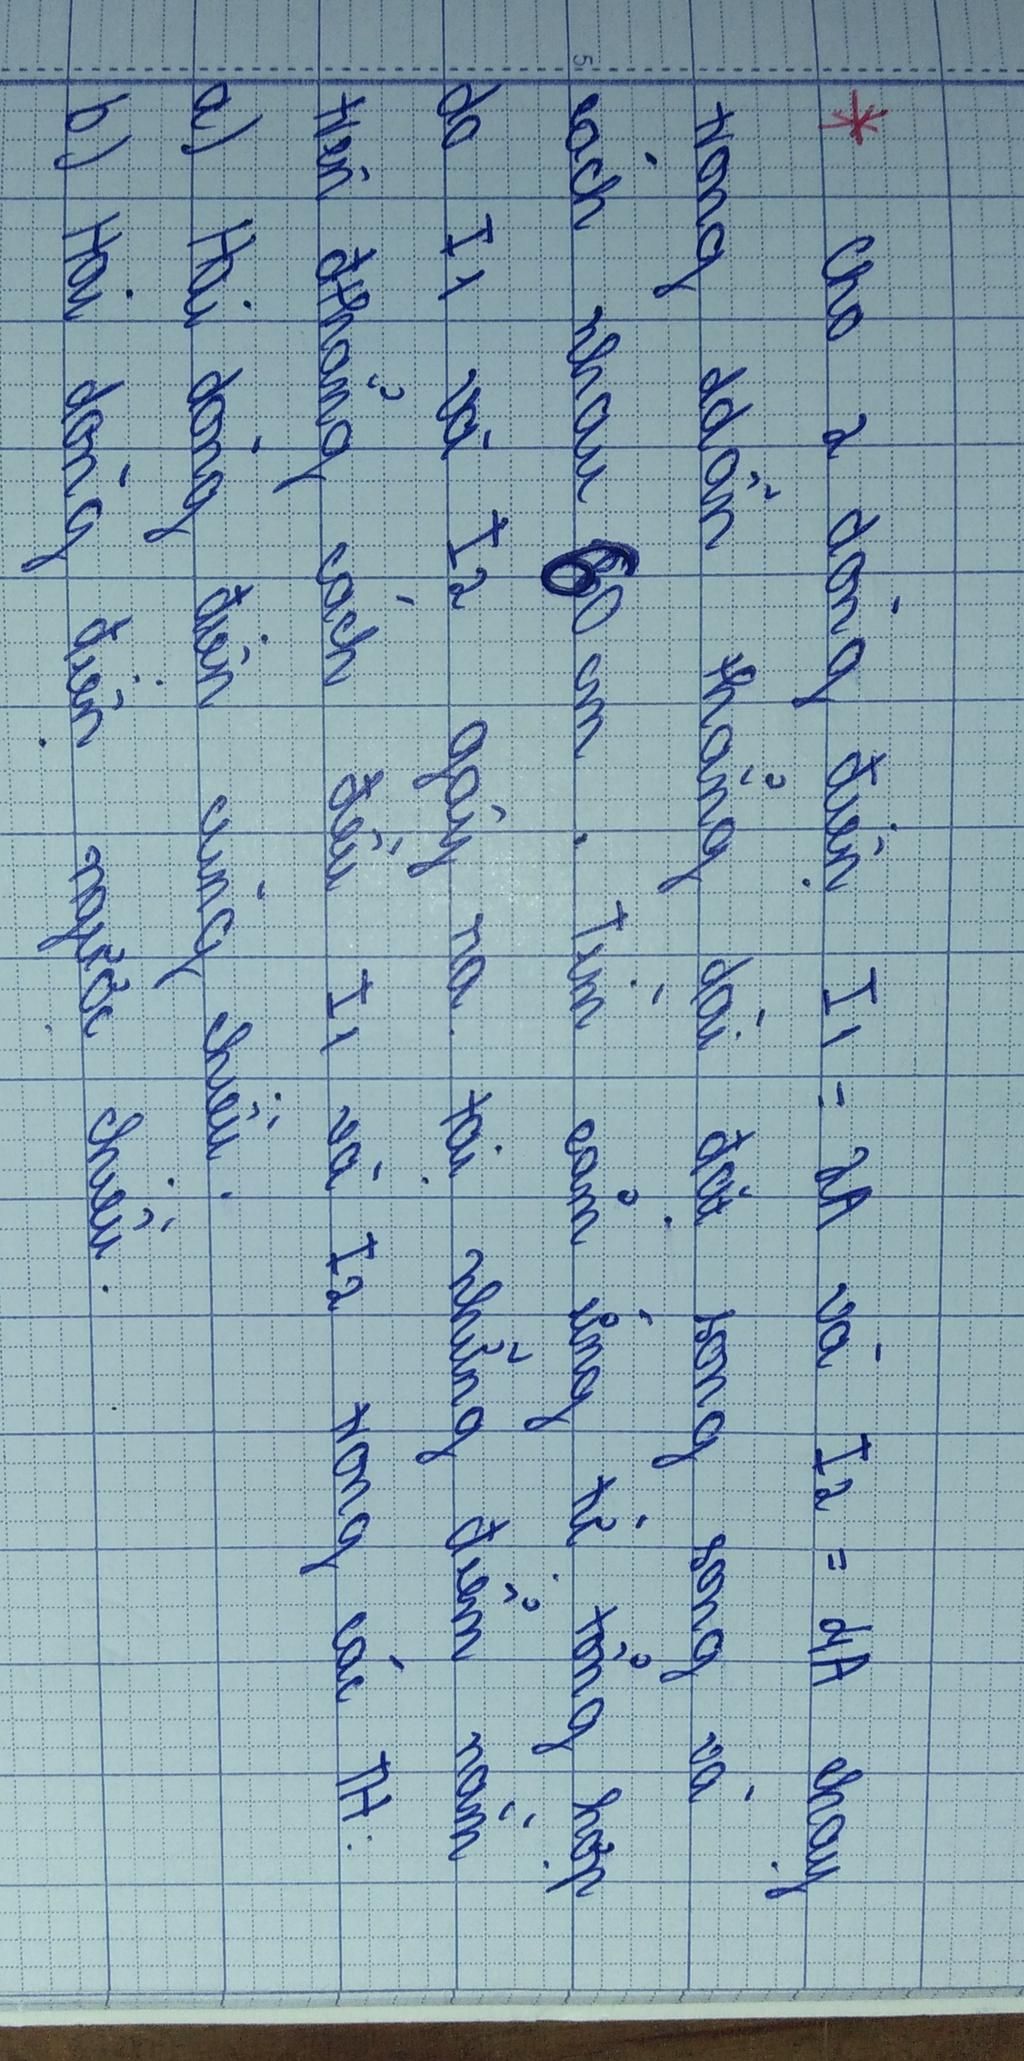 * Cho 2 dòng điện I1 = 2A và I2 = 4A chạy
trong 2 dây dẫn thẳng dài đặt song song và
cách nhau 60 cm. Tìm cảm ứng từ tổng hợp
do I1 và I2 gây ra tại những điểm nằm
trên đthẳng cách đều I1 và I2 trong các TH:
a) Hai dòng điện cùng chiều.
b) Hai dòng điện ngược chiều.
5